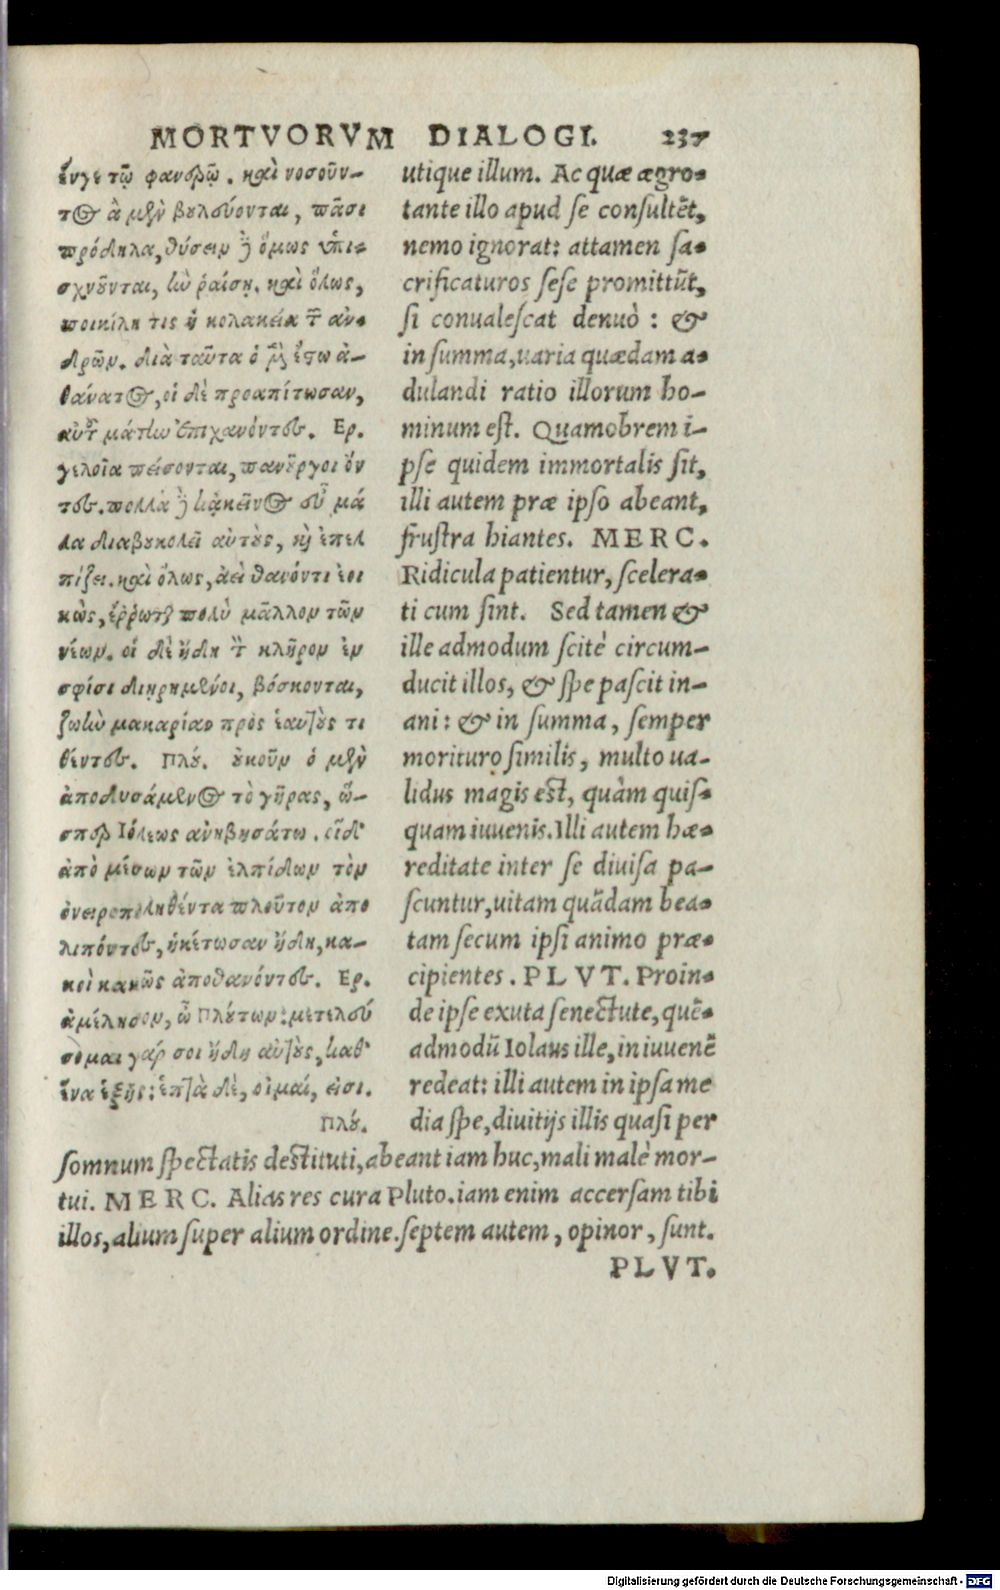 MORTVORVM DIALOGI. 237
ἔνγε τῷ φανερῷ. καὶ νοσοῦν-
τος ἃ μὲν βουλεύονται, πᾶσι
πρόδηλα, θύσειν δὲ ὅμως ὑπι-
σχνοῦνται, ἢν ῥαίσῃ. καὶ ὅλως,
ποικίλη τις ἡ κολακεία τῶν ἀν-
δρῶν. διὰ ταῦτα ὁ μὲν ἔστω ἀ-
θάνατος, οἱ δὲ προαπίτωσαν,
αὐτοῦ μάτην ἐπιχανόντες. Ερ.
γελοῖα πείσονται, πανοῦργοι ὄν
τες. πολλὰ δὲ κἀκεῖνος εὖ μά
λα διαβουκολεῖ αὐτοὺς, καὶ ἐπελ
πίζει. καὶ ὅλως, ἀεὶ θανόντι ἐοι
κὼς, ἔρρωται πολὺ μᾶλλον τῶν
νέων. οἱ δὲ ἤδη τὸν κλῆρον ἐν
σφίσι διῃρημένοι, βόσκονται,
ζωὴν μακαρίαν πρὸς ἑαυτοὺς τι
θέντες. Πλού. οὐκοῦν ὁ μὲν
ἀποδυσάμενος τὸ γῆρας, ὥ-
σπερ Ιόλεως ἀνηβησάτω. οἱ δ'
ἀπὸ μέσων τῶν ἐλπίδων τὸν
ὀνειροποληθέντα πλοῦτον ἀπο
λιπόντες, ἡκέτωσαν ἤδη, κα-
κοὶ κακῶς ἀποθανόντες. Ερ.
ἀμέλησον, ὦ Πλούτων: μετελεύ
σομαι γάρ σοι ἤδη αὐτοὺς, καθ'
ἕνα ἑξῆς: ἑπτὰ δὲ, οἶμαί, εἰσι.
Πλού.
utique illum. Ac quæ ægro-
tante illo apud se consultēt,
nemo ignorat: attamen sa-
crificaturos sese promittūt,
si conualescat denuò : &
in summa, uaria quædam a-
dulandi ratio illorum ho-
minum est. Quamobrem i-
pse quidem immortalis sit,
illi autem præ ipso abeant,
frustra hiantes. MERC.
Ridicula patientur, scelera-
ti cum sint. Sed tamen &
ille admodum scitè circum-
ducit illos, & spe pascit in-
ani: & in summa, semper
morituro similis, multo ua-
lidus magis est, quàm quis-
quam iuuenis. Illi autem hæ-
reditate inter se diuisa pa-
scuntur, uitam quādam bea-
tam secum ipsi animo præ-
cipientes. PLVT. Proin-
de ipse exuta senectute, quē-
admodū Iolaus ille, in iuuenē
redeat: illi autem in ipsa me
dia spe, diuitijs illis quasi per
somnum spectatis destituti, abeant iam huc, mali malè mor-
tui. MERC. Alias res cura Pluto. iam enim accersam tibi
illos, alium super alium ordine. septem autem, opinor, sunt.
PLVT.
Digitalisierung gefördert durch die Deutsche Forschungsgemeinschaft - DFG